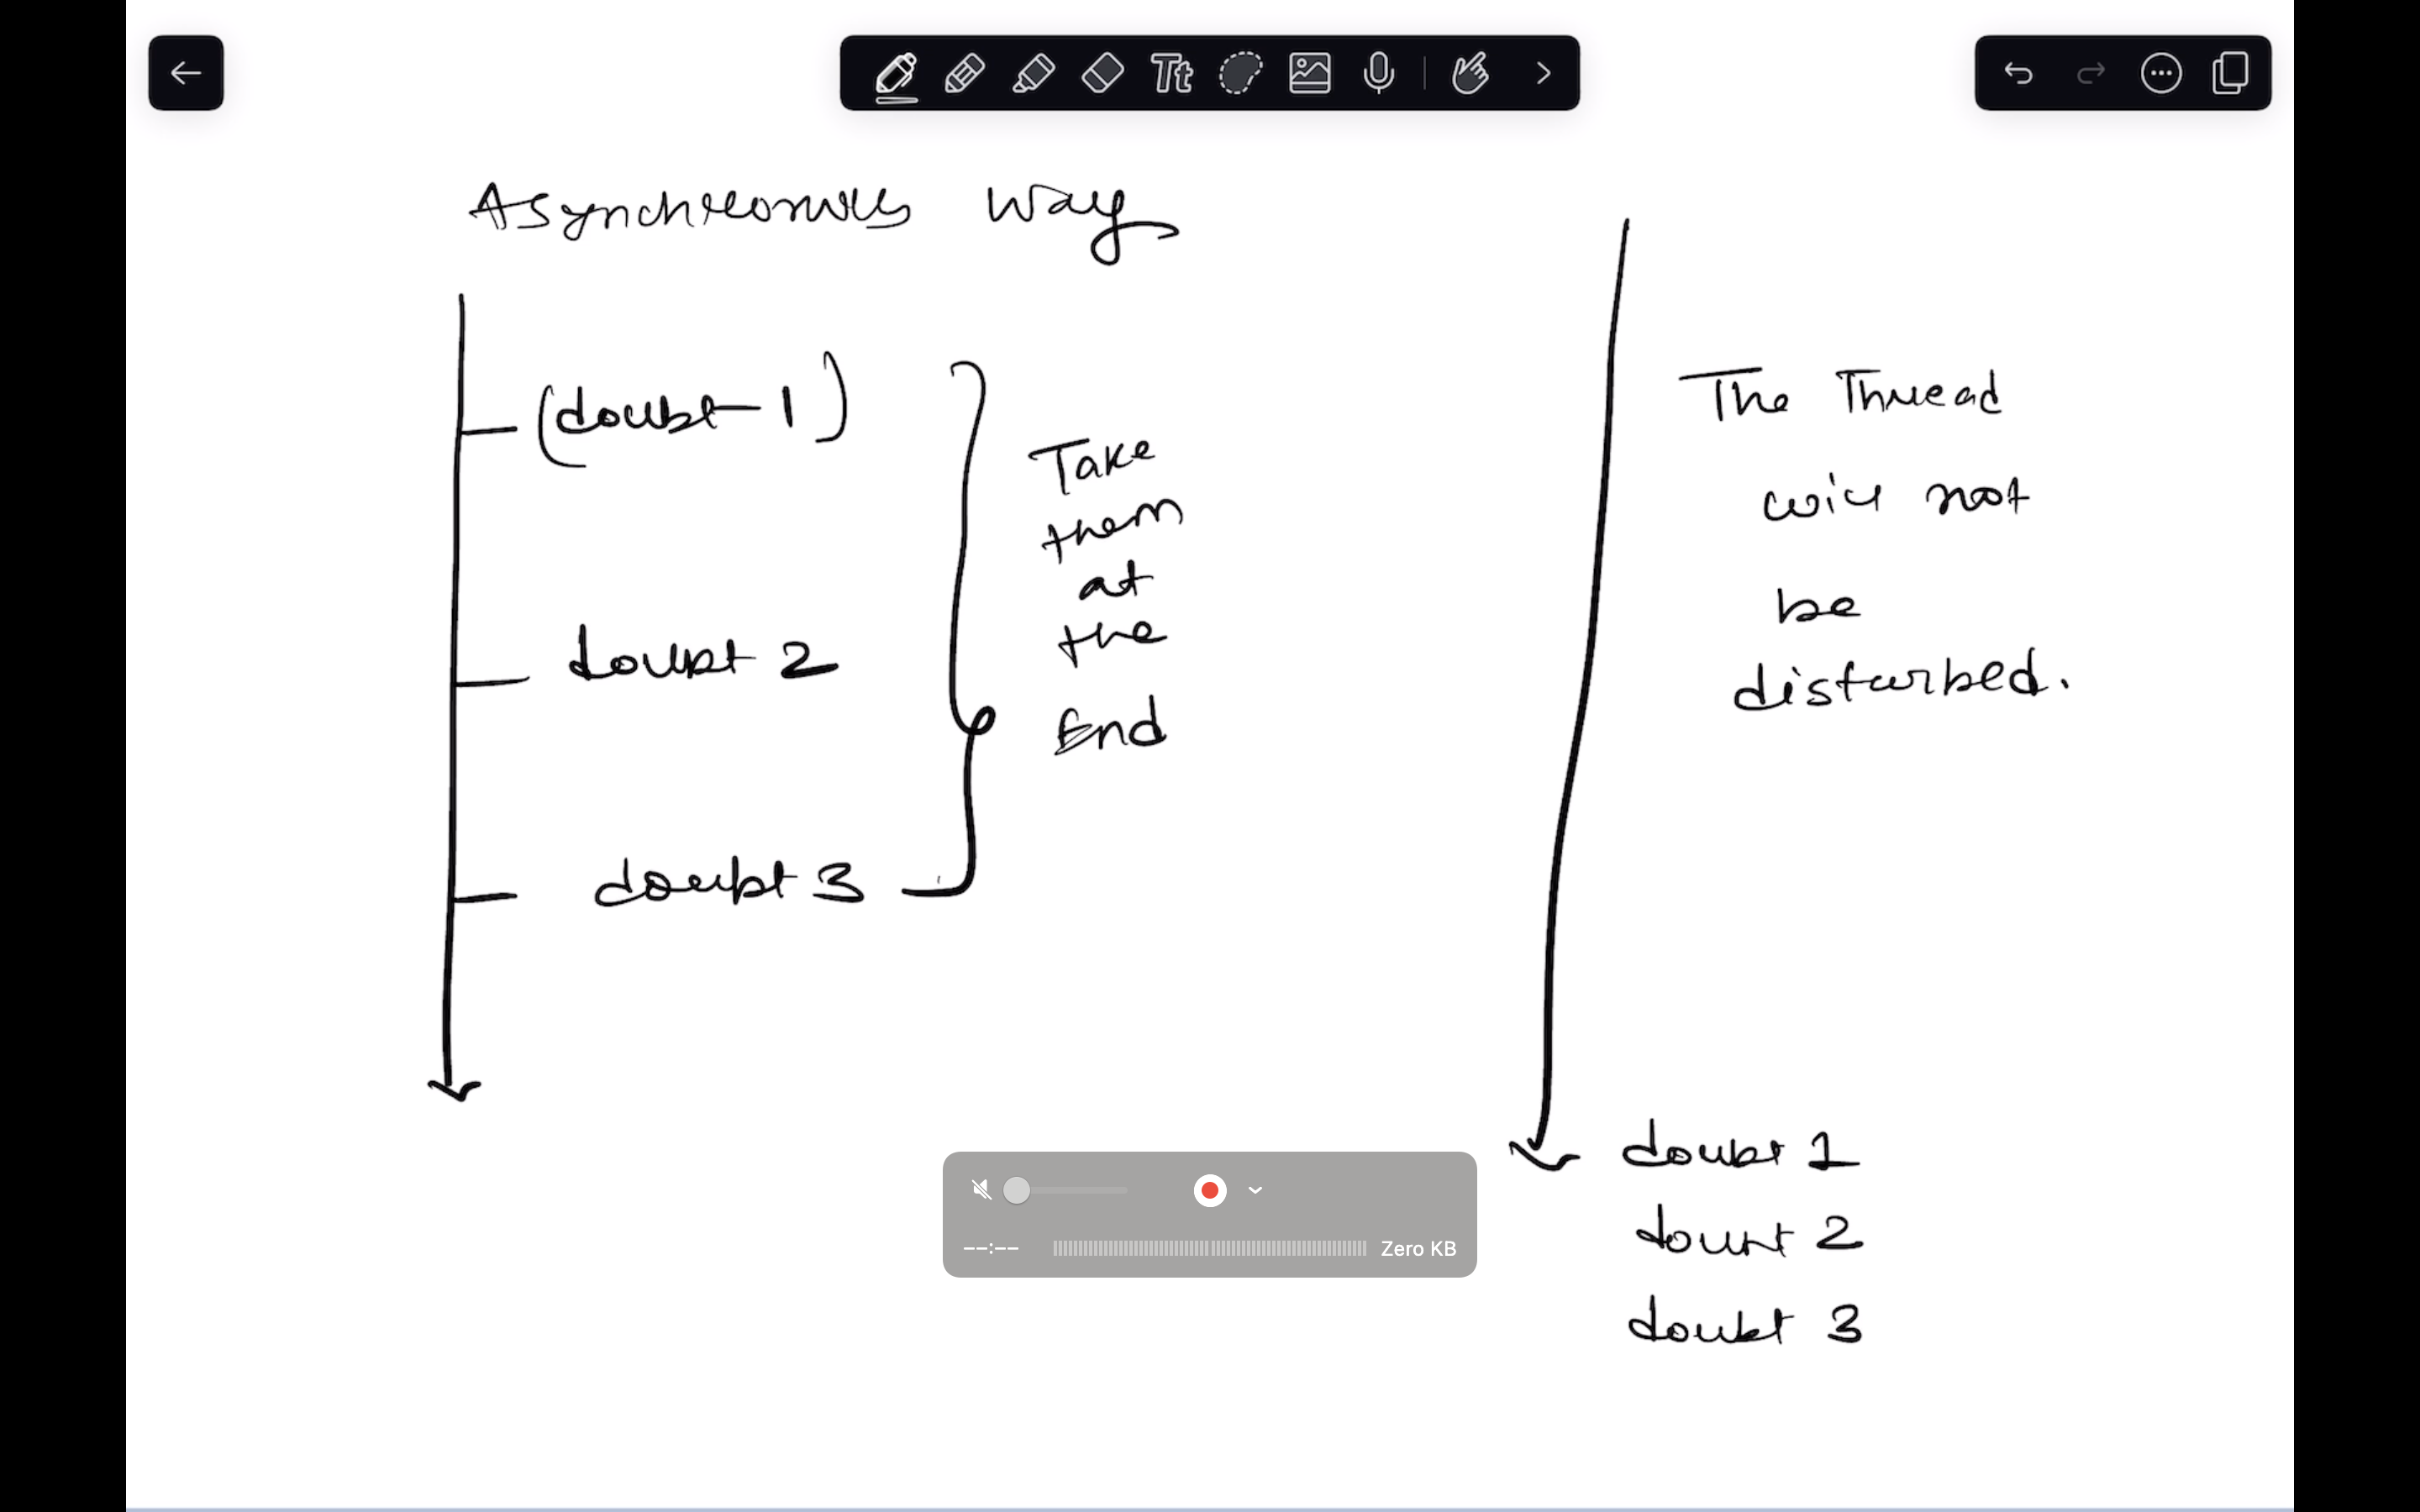 Asynchronous Way
(doubt-1)
doubt 2
doubt 3
Take
them
at
the
End
The Thread
will not
be
disturbed.
doubt 1
doubt 2
doubt 3
Tt
--:--
Zero KB